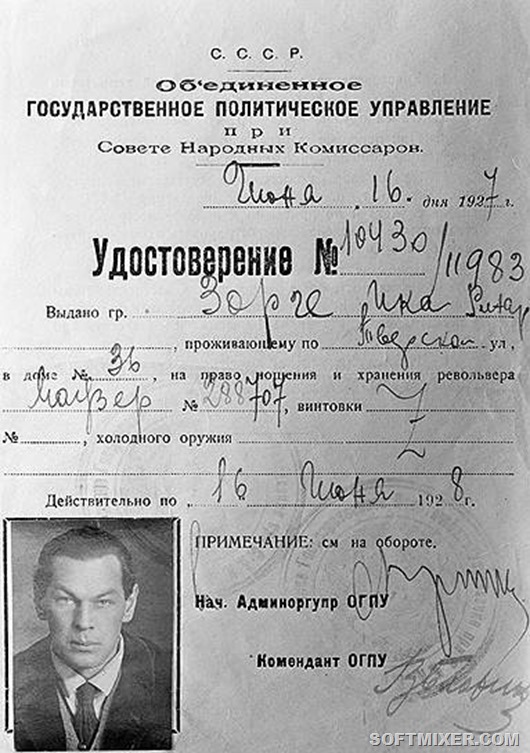 С. С. С. Р.
Объединенное
ГОСУДАРСТВЕННОЕ ПОЛИТИЧЕСКОЕ УПРАВЛЕНИЕ
при
Совете Народных Комиссаров.
Июня 16. дня 1927 г.
Удостоверение № 10430/11983
Выдано гр. Зорге Ика Рихар
, проживающему по Тверской ул,
в доме № 36, на право ношения и хранения револьвера
Маузер № 288707, винтовки Z
№ , холодного оружия Z
Действительно по 16 Июня 1928 г.
ПРИМЕЧАНИЕ: см на обороте.
Нач. Админоргупр ОГПУ
Комендант ОГПУ
SOFTMIXER.COM